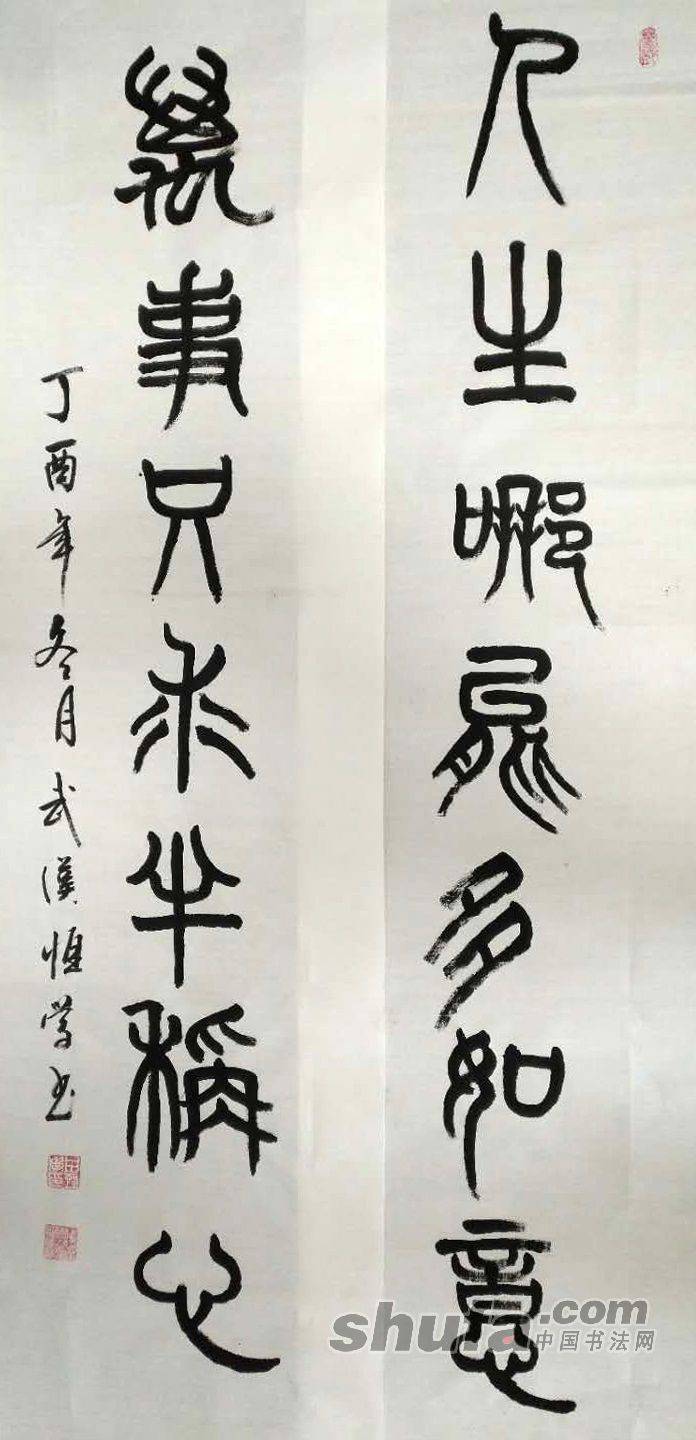 人生哪能多如意
萬事只求半稱心
丁酉年冬月武漢恒学书
shufa.com
中国书法网